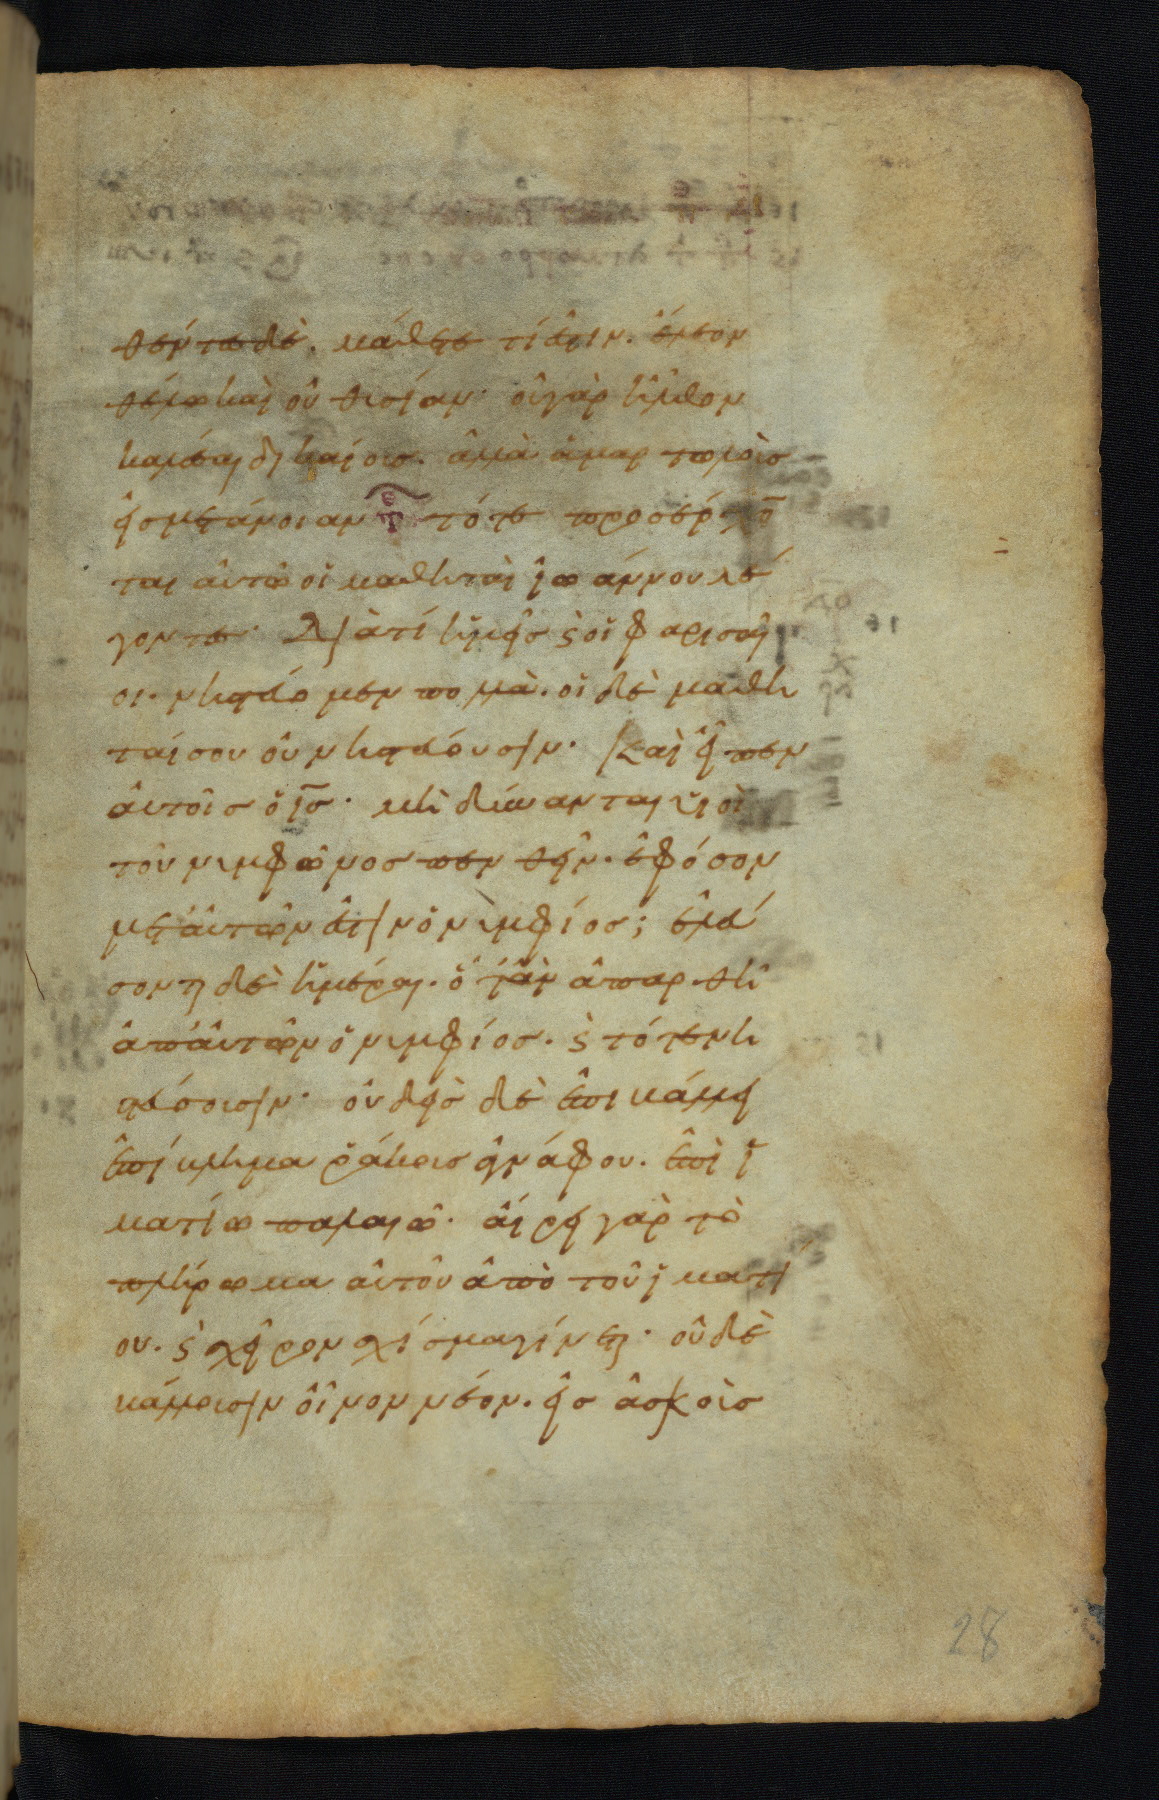 θέντεσ δὲ. μάθετε τί ἐστιν. ἔλεον
θέλω καὶ οὐ θυσίαν· οὐ γὰρ ἦλθον
καλέσαι δικαίουσ. ἀλλὰ ἁμαρτωλοὺσ
εἰσ μετάνοιαν τότε προσέρχο̅
ται αὐτῶ οἱ μαθηταὶ ἰωάννου λέ
γοντεσ· Διατί ἡμεῖσ ϛ οἱ φαρισαῖ
οι. νηστεύομεν πολλὰ. οἱ δὲ μαθη
ταί σου οὐ νηστεύουσιν· Καὶ εἶπεν
αὐτοῖσ ὁ ι̅σ̅· μὴ δύνανται υἱοὶ
τοῦ νυμφῶνοσ πενθεῖν. ἐφόσον
μετ' αὐτῶν ἐστιν ὁ νυμφίοσ; ἐλεύ
σονται δὲ ἡμέραι. ὅταν ἀπαρθῆ
ἀπ' αὐτῶν ὁ νυμφίοσ. ϛ τότε νη
στεύσουσιν· οὐδεὶσ δὲ ἐπιβάλλει
ἐπίβλημα ῥάκουσ ἀγνάφου. ἐπὶ ἱ
ματίω παλαιῶ· αἴρει γὰρ τὸ
πλήρωμα αὐτοῦ ἀπὸ τοῦ ἱματί
ου. ϛ χεῖρον σχίσμα γίνεται· οὐδὲ
βάλλουσιν οἶνον νέον. εἰσ ἀσκοὺσ
28